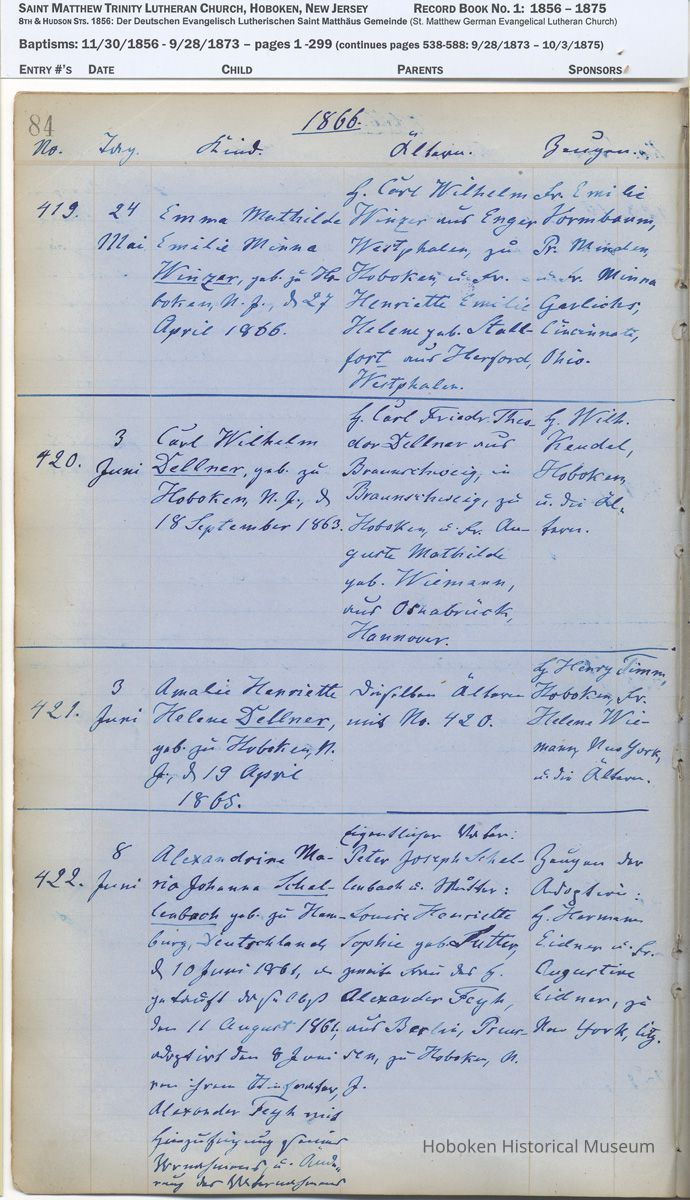 SAINT MATTHEW TRINITY LUTHERAN CHURCH, HOBOKEN, NEW JERSEY RECORD BOOK NO. 1: 1856 – 1875
8TH & HUDSON STS. 1856: Der Deutschen Evangelisch Lutherischen Saint Matthäus Gemeinde (St. Matthew German Evangelical Lutheran Church)
Baptisms: 11/30/1856 - 9/28/1873 – pages 1 -299 (continues pages 538-588: 9/28/1873 – 10/3/1875)
ENTRY #'S DATE CHILD PARENTS SPONSORS
84
1866.
No. Tag. Kind. Ältern. Zeugen.
419. 24 Mai
Emma Mathilde
Emilie Minna
Winzer, geb. zu Ho-
boken, N. J., d. 27
April 1866.
H. Carl Wilhelm
Winzer aus Enger
Westphalen, zu
Hoboken, u. Fr.
Henriette Emilie
Helene geb. Stall-
fort aus Herford,
Westphalen.
Fr. Emilie
Vormbaum,
Pr. Minden,
u. Fr. Minna
Garlichs,
Cincinnati,
Ohio.
420. 3 Juni
Carl Wilhelm
Dellner, geb. zu
Hoboken, N. J., d.
18 September 1863.
H. Carl Friedr. Theo-
dor Dellner aus
Braunschweig, in
Braunschweig, zu
Hoboken, u. Fr. Au-
guste Mathilde
geb. Wiemann,
aus Osnabrück,
Hannover.
H. Wilh.
Keudel,
Hoboken,
u. die Äl-
tern.
421. 3 Juni
Amalie Henriette
Helene Dellner,
geb. zu Hoboken, N.
J., d. 19 April
1865.
Dieselben Ältern
mit No. 420.
H. Henry Timm,
Hoboken, Fr.
Helene Wie-
mann, New York,
u. die Ältern.
422. 8 Juni
Alexandrine Ma-
ria Johanna Schel-
lenbach geb. zu Ham-
burg, Deutschland,
d. 10 Juni 1861,
getauft daselbst
den 11 August 1861,
adoptirt den 8 Juni
von ihrem Stiefvater,
Alexander Feyh mit
Hinzufügung seines
Vornahmens u. Ände-
rung des Vaternahmens
Eigentlicher Vater:
Peter Joseph Schel-
lenbach u. Mutter:
Louise Henriette
Sophie geb. Putter,
zweite Frau des H.
Alexander Feyh,
aus Berlin, Preus-
sen, zu Hoboken, N.
J.
Zeugen der
Adoption:
H. Hermann
Eidner u. Fr.
Augustine
Eidner, zu
New York, City.
Hoboken Historical Museum